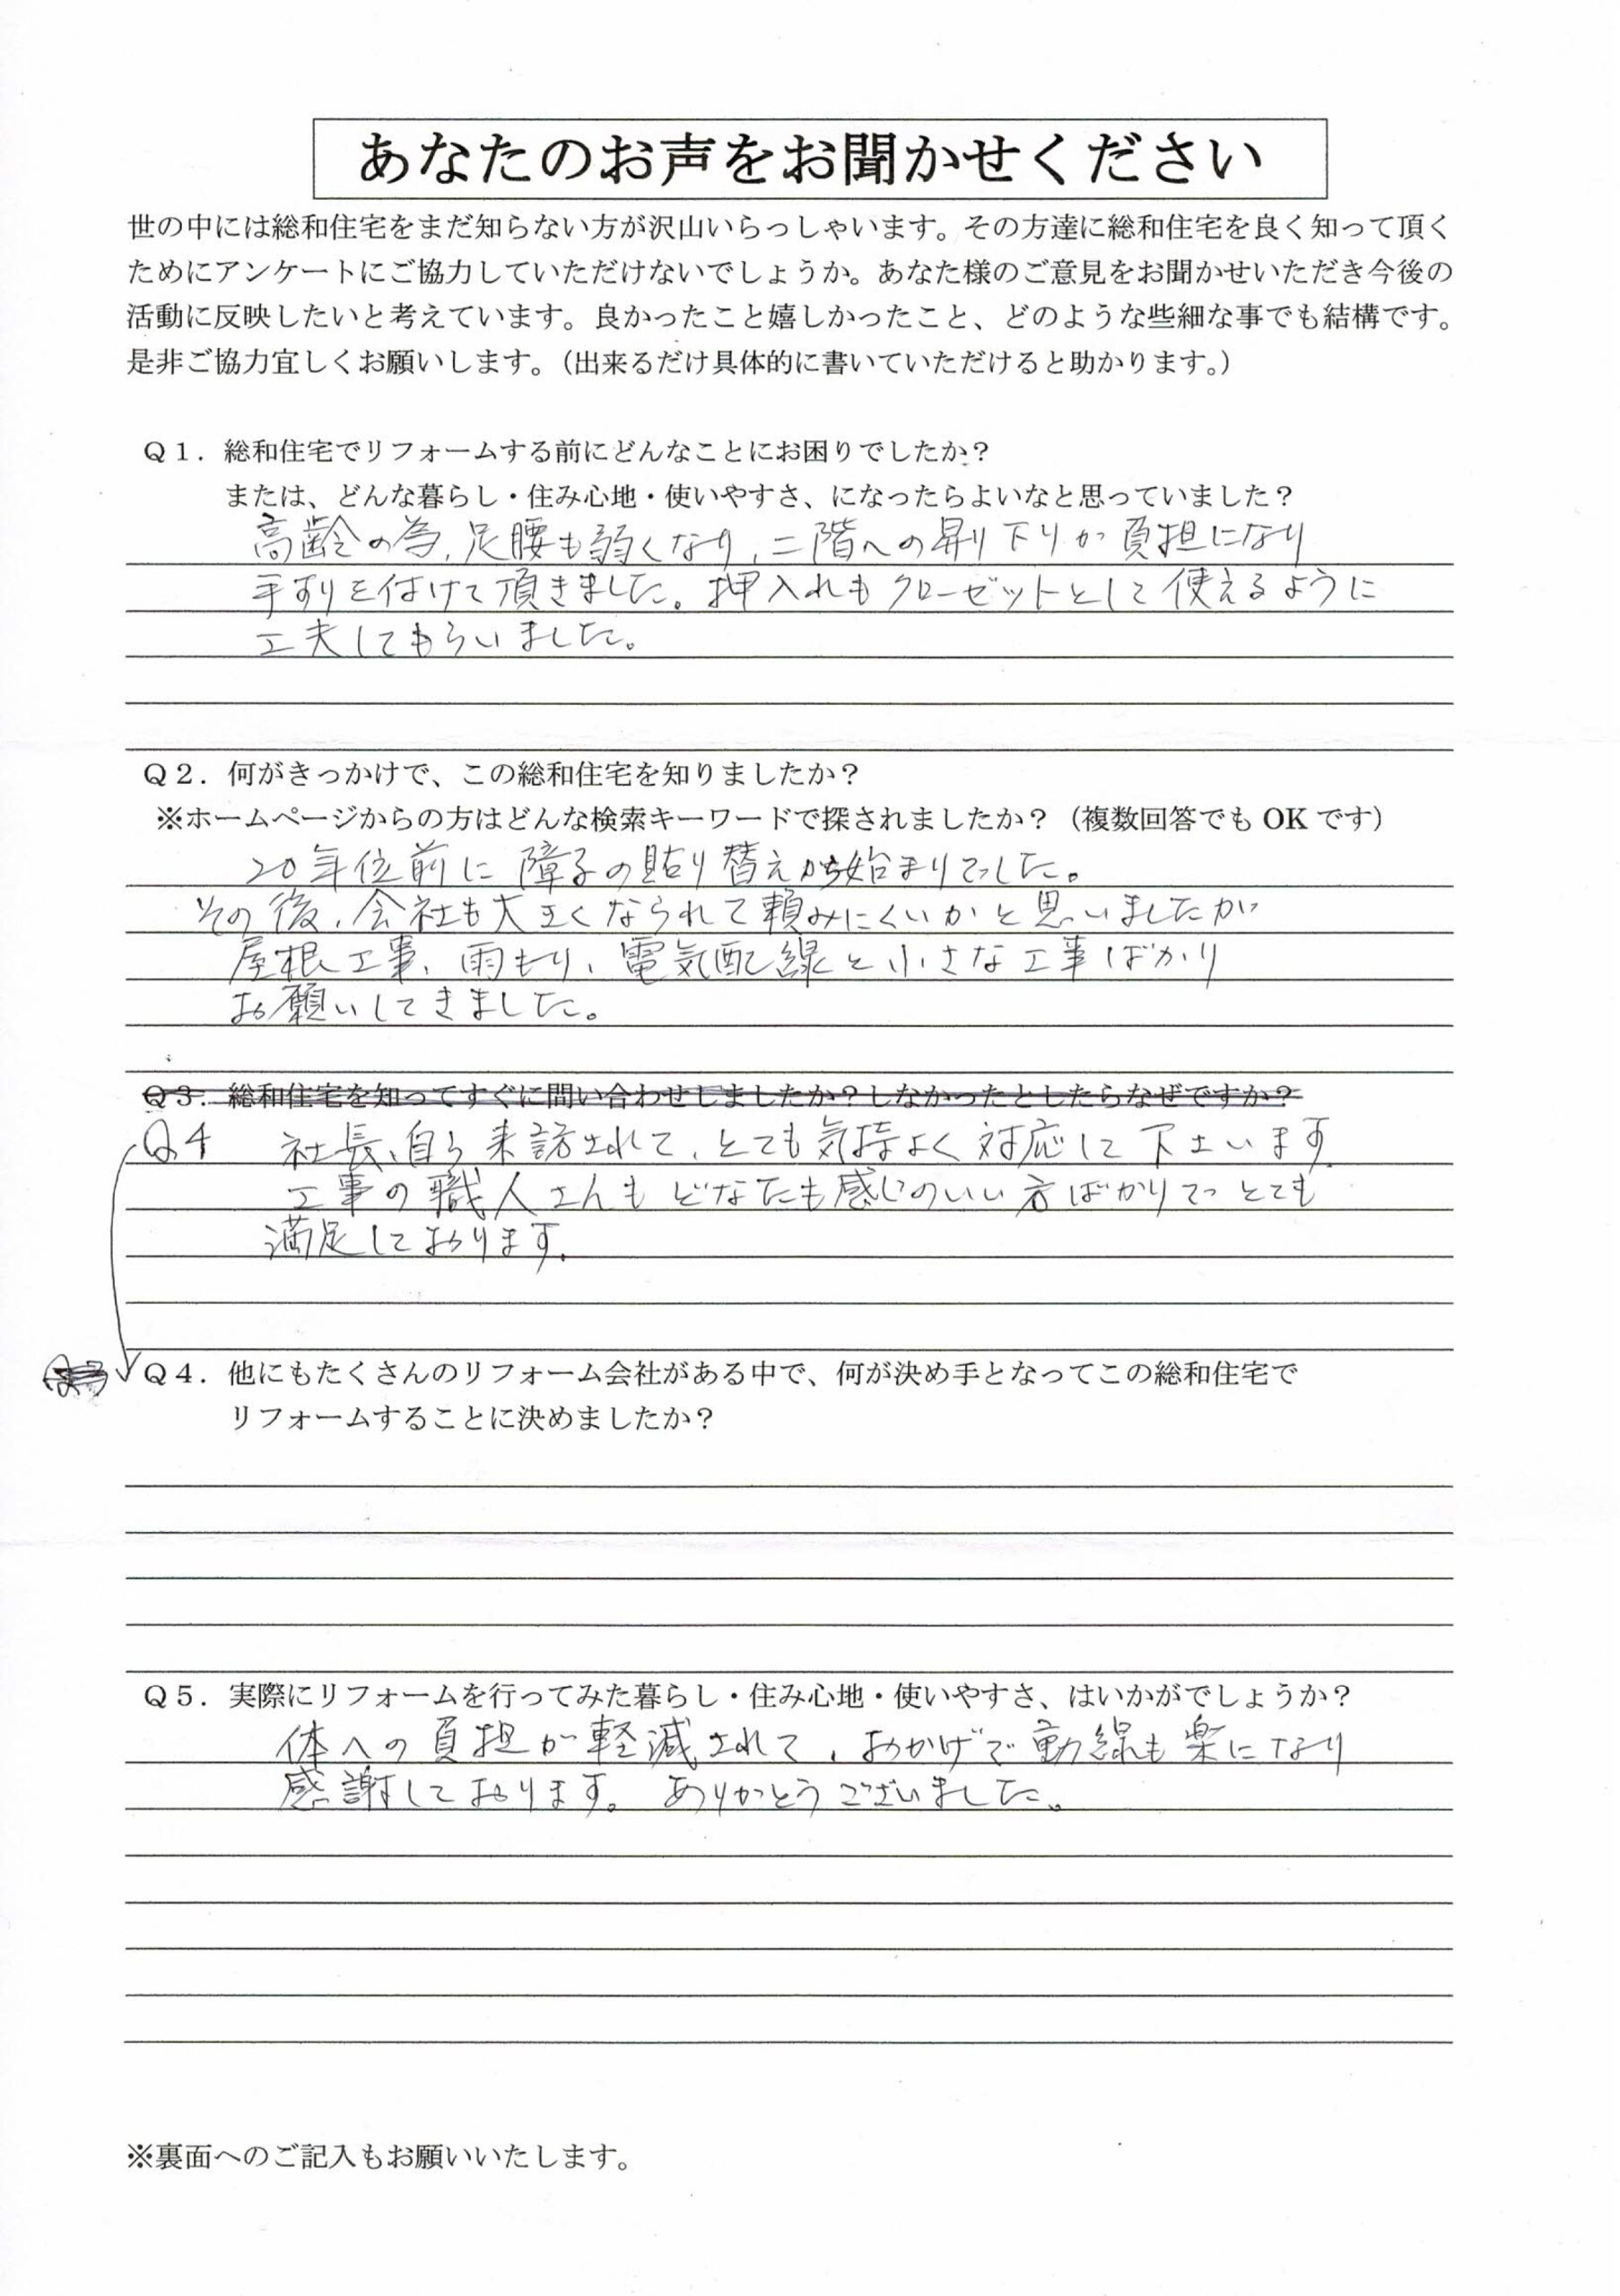 あなたのお声をお聞かせください
世の中には総和住宅をまだ知らない方が沢山いらっしゃいます。その方達に総和住宅を良く知って頂く
ためにアンケートにご協力していただけないでしょうか。あなた様のご意見をお聞かせいただき今後の
活動に反映したいと考えています。良かったこと嬉しかったこと、どのような些細な事でも結構です。
是非ご協力宜しくお願いします。（出来るだけ具体的に書いていただけると助かります。）
Ｑ１．総和住宅でリフォームする前にどんなことにお困りでしたか？
または、どんな暮らし・住み心地・使いやすさ、になったらよいなと思っていました？
高齢の為、足腰も弱くなり、二階への昇り下りが負担になり
手すりを付けて頂きました。押入れもクローゼットとして使えるように
工夫してもらいました。
Ｑ２．何がきっかけで、この総和住宅を知りましたか？
※ホームページからの方はどんな検索キーワードで探されましたか？（複数回答でも OK です）
20年位前に障子の貼り替えから始まりでした。
その後、会社も大きくなられて頼みにくいかと思いましたが
屋根工事、雨もり、電気配線と小さな工事ばかり
お願いしてきました。
Ｑ３．総和住宅を知ってすぐに問い合わせしましたか？しなかったとしたらなぜですか？
Q4 社長、自ら来訪されて、とても気持よく対応して下さいます
工事の職人さんもどなたも感じのいい方ばかりでとても
満足しております。
Ｑ４．他にもたくさんのリフォーム会社がある中で、何が決め手となってこの総和住宅で
リフォームすることに決めましたか？
Ｑ５．実際にリフォームを行ってみた暮らし・住み心地・使いやすさ、はいかがでしょうか？
体への負担が軽減されて、おかげで動線も楽になり
感謝しております。ありがとうございました。
※裏面へのご記入もお願いいたします。